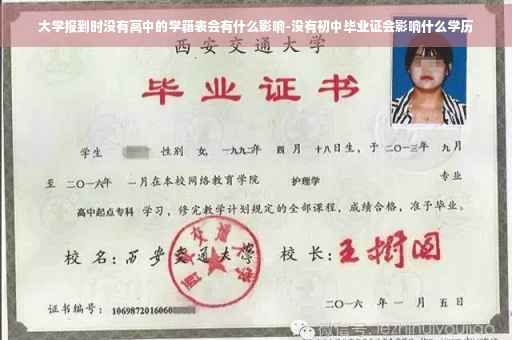 大学报到时没有高中的学籍表会有什么影响-没有初中毕业证会影响什么学历
西安交通大学
毕业证书
学生 性别 女, 一九九二年 四月 十八日生, 于 二〇一三年 九月
至 二〇一六年 一月在本校网络教育学院 护理学 专业
高中起点专科 学习, 修完教学计划规定的全部课程, 成绩合格, 准予毕业。
校名: 西安交通大学 校长: 王树国
西安交通大学
证书编号: 1069872016060
二〇一六年 一月 五日
微信号: jezhihuiyoujiao